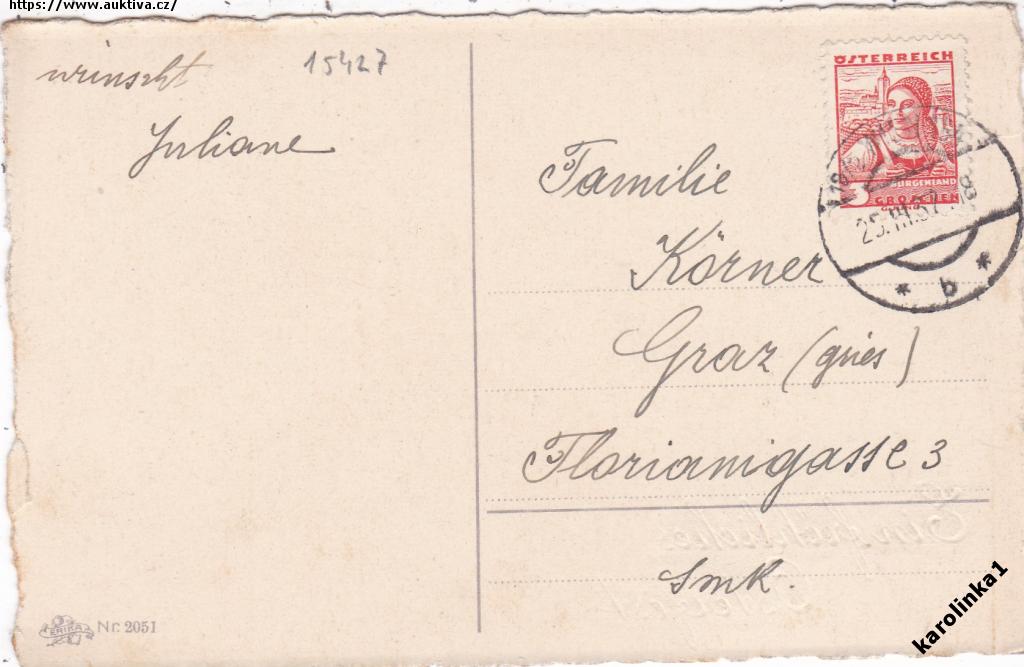 https://www.auktiva.cz/
wünscht
Juliane
15427
ÖSTERREICH
BURGENLAND
3 GROSCHEN
25.III.37
* b *
Familie
Körner
Graz (gries)
Florianigasse 3
Smk.
ERIKA
Nr. 2051
karolinka1